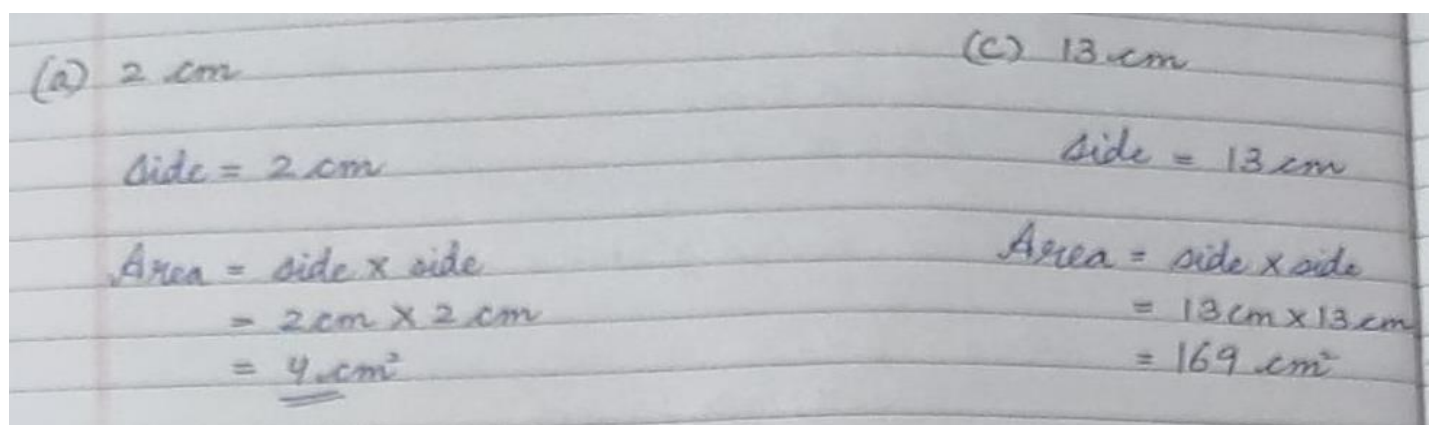 (a) 2 cm
side = 2 cm
Area = side × side
= 2 cm × 2 cm
= 4 cm²
(C) 13 cm
side = 13 cm
Area = side × side
= 13 cm × 13 cm
= 169 cm²